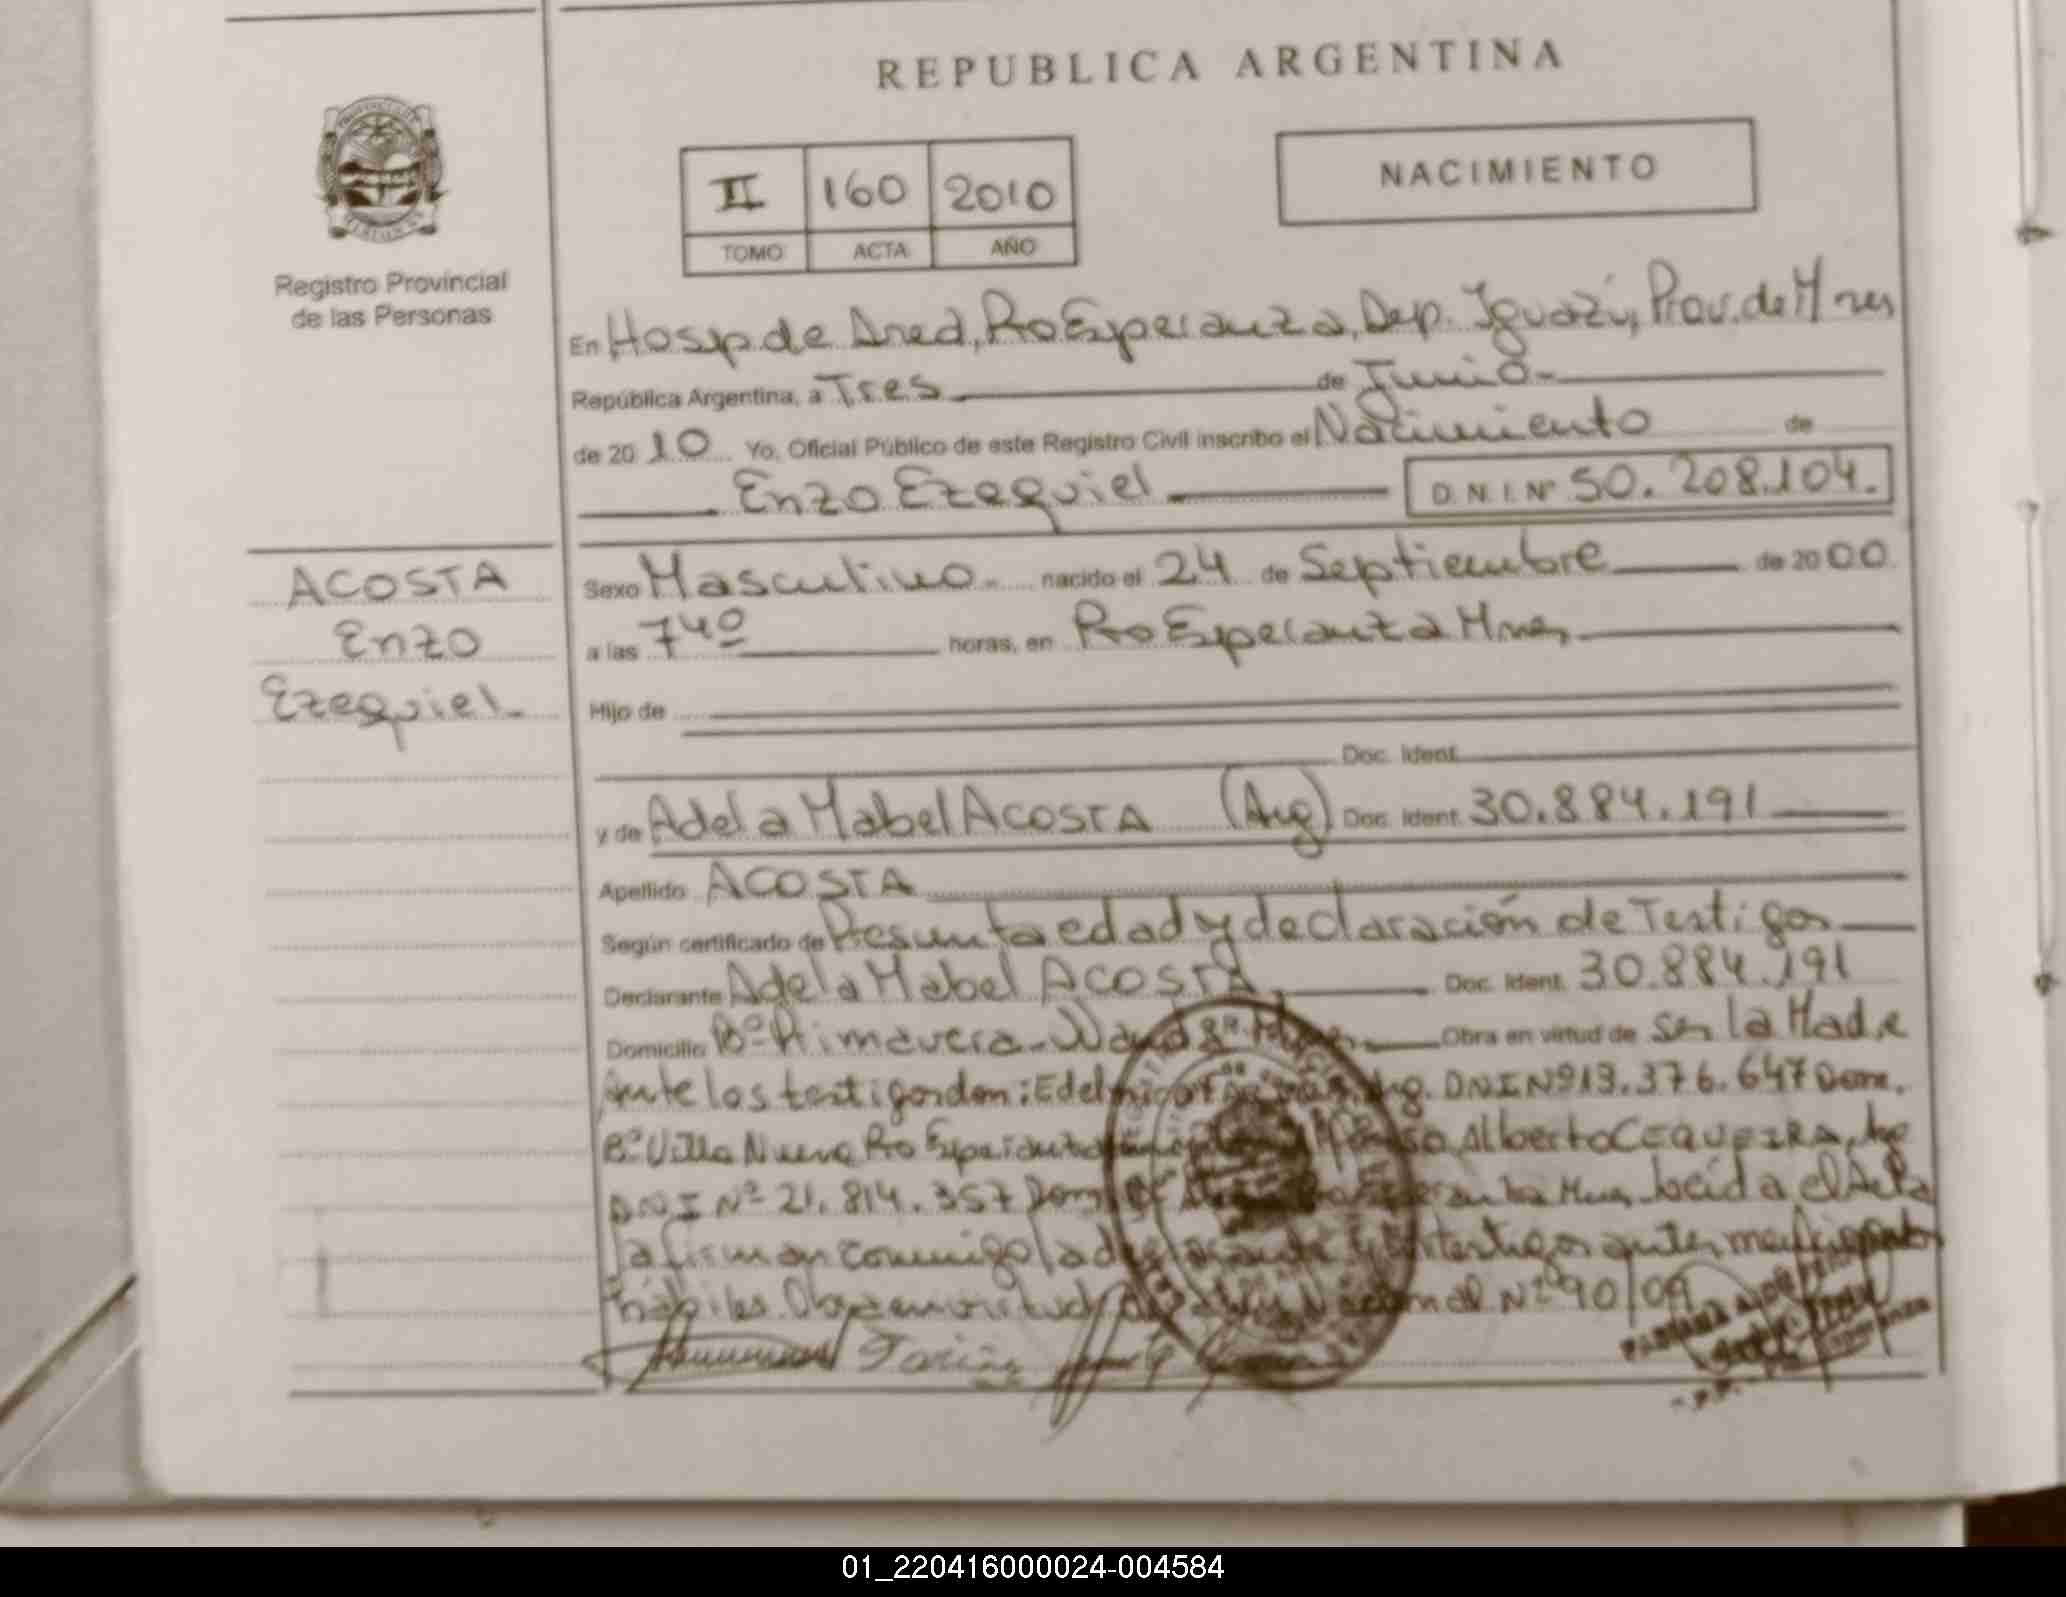 REPUBLICA ARGENTINA
II 160 2010
TOMO ACTA AÑO
NACIMIENTO
Registro Provincial
de las Personas
En Hosp. de Area, Pto Esperanza, Dep. Iguazú, Prov. de Mnes
República Argentina, a Tres de Junio
de 2010 Yo, Oficial Público de este Registro Civil inscribo el Nacimiento de
Enzo Ezequiel D.N.I.Nº 50.208.104.
ACOSTA
Enzo
Ezequiel
Sexo Masculino nacido el 24 de Septiembre de 2000
a las 7 40 horas, en Pto Esperanza Mnes,
Hijo de
Doc. Ident.
y de Adela Mabel ACOSTA (Arg) Doc. Ident. 30.884.191
Apellido ACOSTA
Según certificado de Presunta edad y declaración de Testigos
Declarante Adela Mabel ACOSTA Doc. Ident. 30.884.191
Domicilio Bº Primavera - Wanda Obra en virtud de ser la Madre
ante los testigos don: Arg. DNI Nº 13.376.647 Dom.
Bº Villa Nueva Pto Esperanza Alberto CEQUEIRA, Arg
DNI Nº 21.814.357 Dom Mnes, Leída el Acta
la firman conmigo la declarante y testigos antes mencionados
hábiles. Obra en virtud Nacional Nº 90/09
01_220416000024-004584